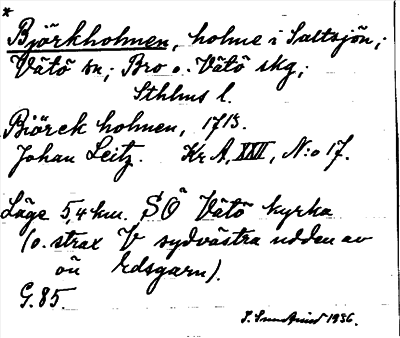 *
Björkholmen, holme i Saltsjön;
Vätö sn; Bro o. Vätö skg;
Sthlms l.
Biörck holmen, 1715.
Johan Leitz. Kr A, XXII, N:o 17.
Läge 5,4 km. SÖ Vätö kyrka
(o. strax V sydvästra udden av
ön Edsgarn).
G. 85.
1936.